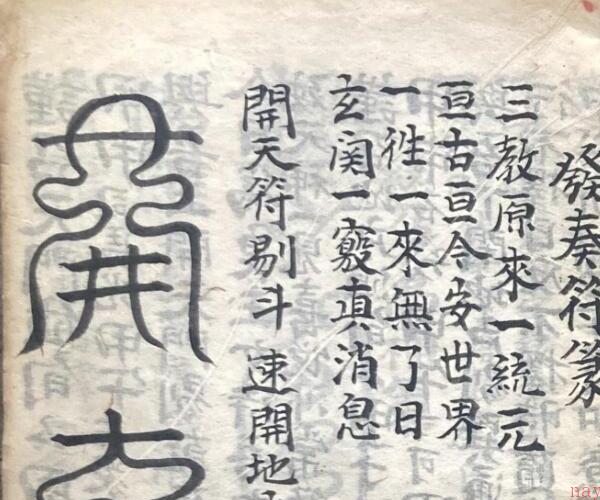 發奏符篆
三教原來一統元
亘古亘今安世界
一徃一來無了日
玄関一竅真消息
開天符剔斗 速開地
nav